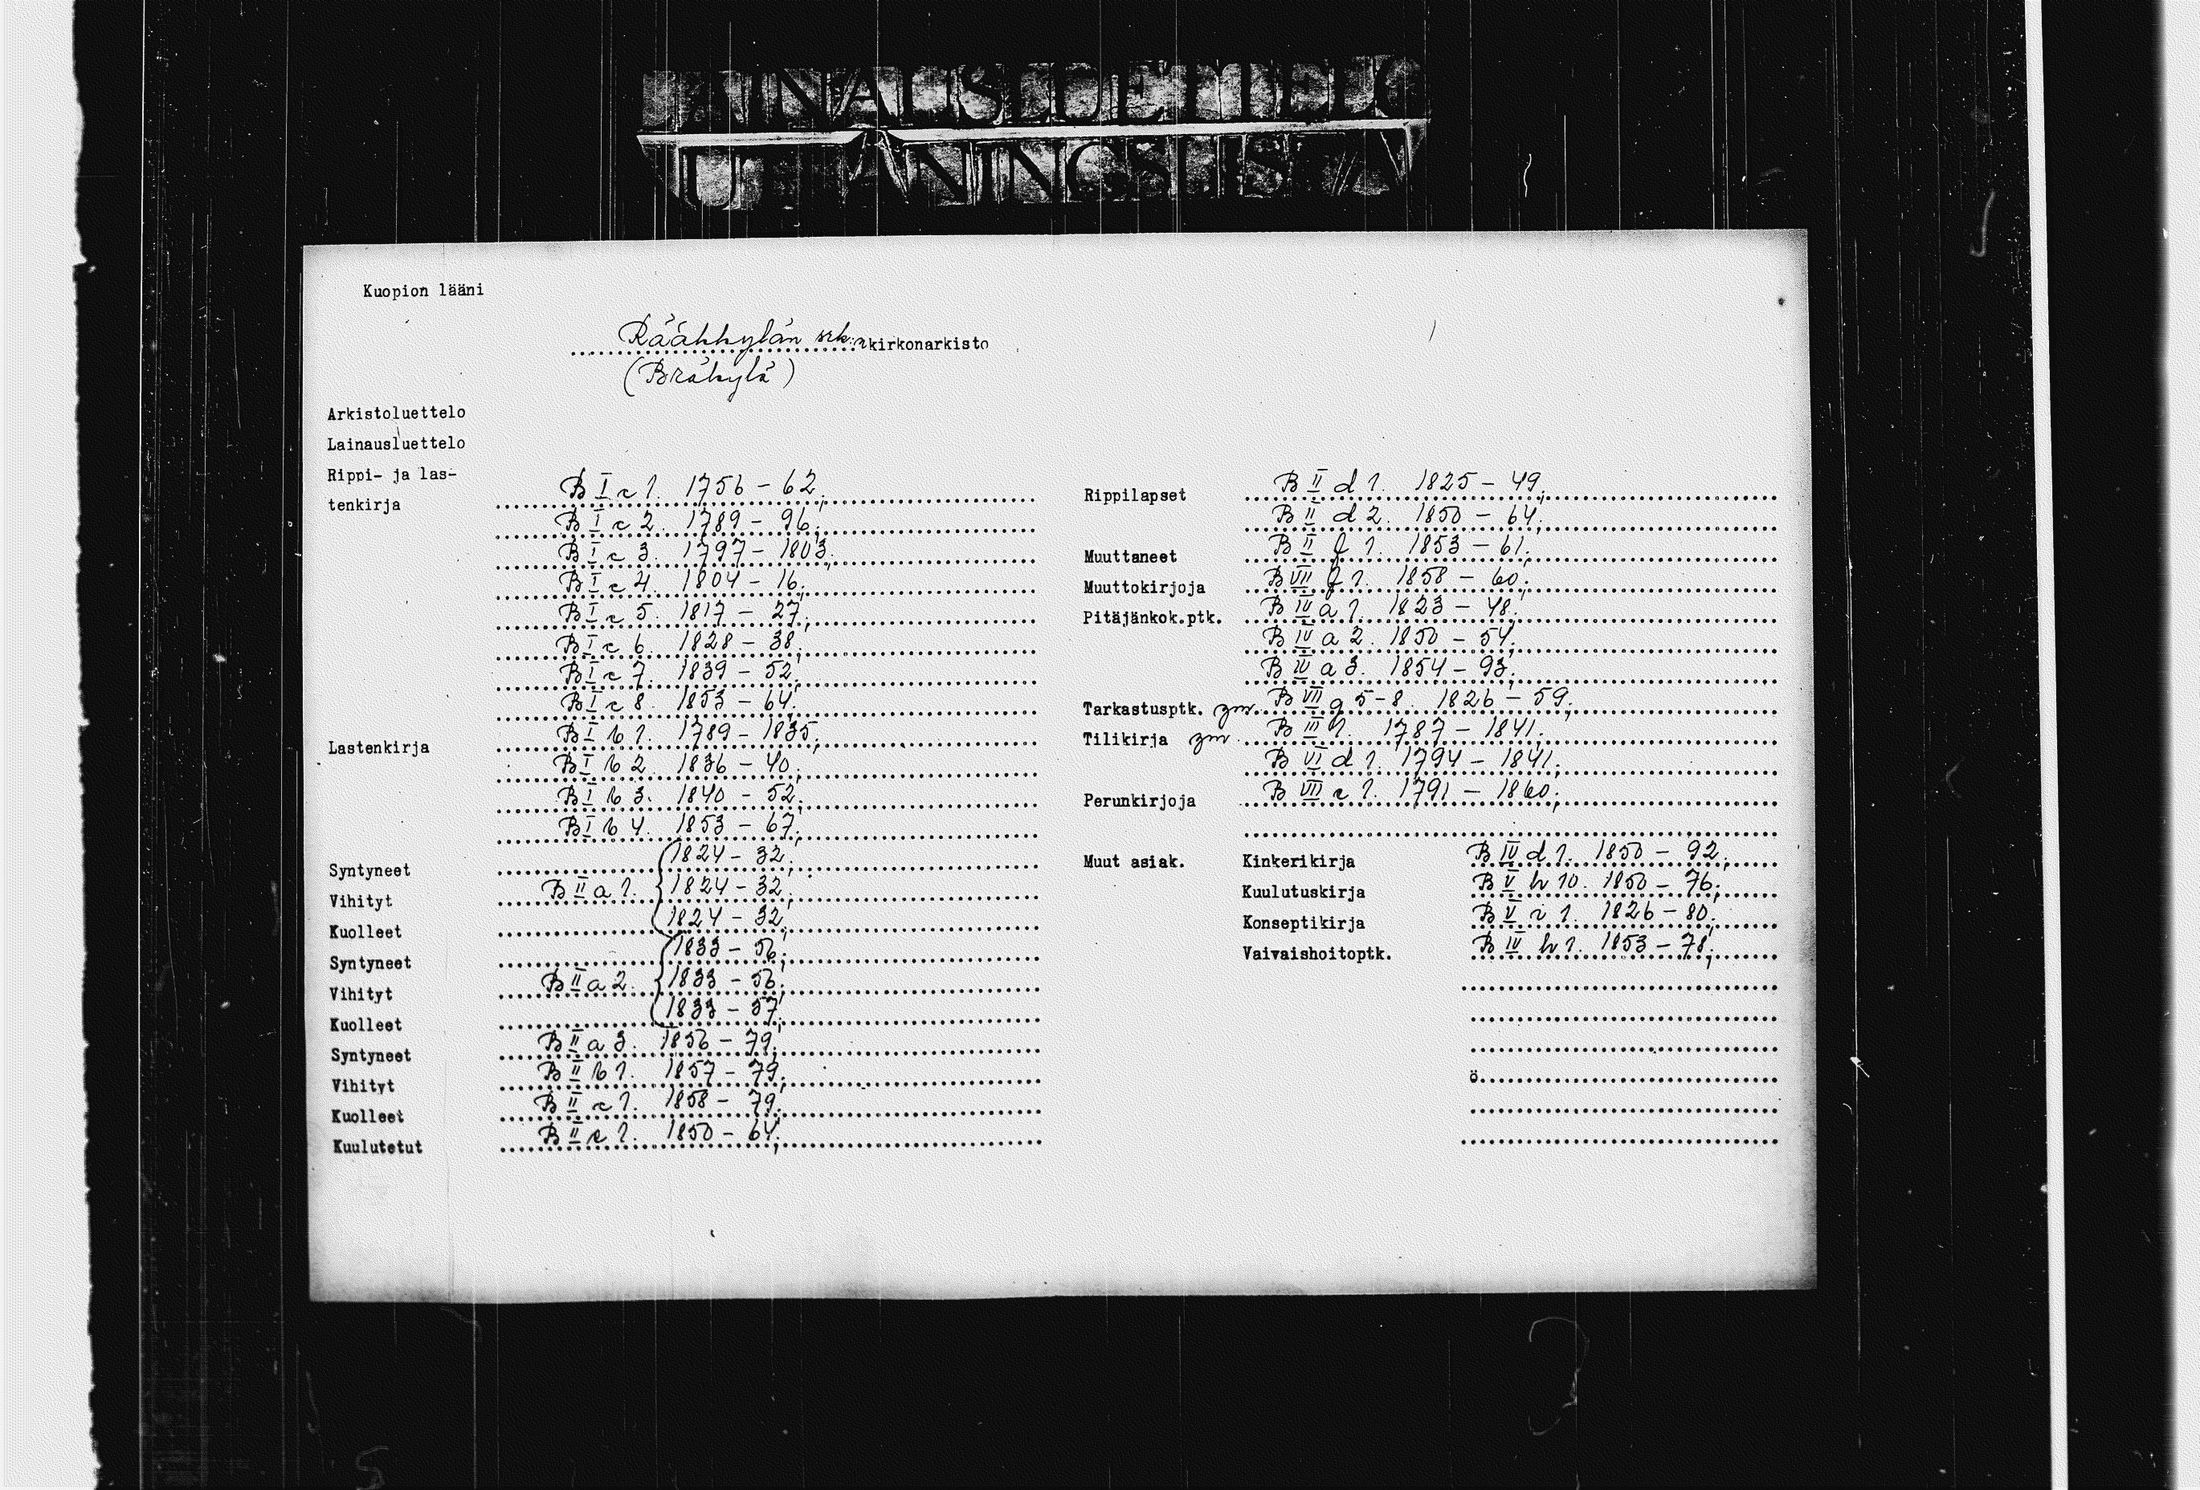 LAINAUSLUETTELO
UTLÅNINGSLISTA
Kuopion lääni
Rääkkylän srk:n kirkonarkisto
(Bräkylä)
Arkistoluettelo
Lainausluettelo
Rippi- ja las-
tenkirja B I c 1. 1756 - 62;
B I c 2. 1789 - 96;
B I c 3. 1797 - 1803;
B I c 4. 1804 - 16;
B I c 5. 1817 - 27;
B I c 6. 1828 - 38;
B I c 7. 1839 - 52;
B I c 8. 1853 - 64;
Lastenkirja B I b 1. 1789 - 1835;
B I b 2. 1836 - 40;
B I b 3. 1840 - 52;
B I b 4. 1853 - 67;
Syntyneet 1824 - 32;
Vihityt B II a 1. 1824 - 32;
Kuolleet 1824 - 32;
Syntyneet 1833 - 56;
Vihityt B II a 2. 1833 - 56;
Kuolleet 1833 - 57;
Syntyneet B II a 3. 1856 - 79;
Vihityt B II b 1. 1857 - 79;
Kuolleet B II c 1. 1858 - 79;
Kuulutetut B II e 1. 1850 - 64;
Rippilapset B II d 1. 1825 - 49;
B II d 2. 1850 - 64;
Muuttaneet B II f 1. 1853 - 61;
Muuttokirjoja B VII f 1. 1858 - 60;
Pitäjänkok.ptk. B IV a 1. 1823 - 48;
B IV a 2. 1850 - 54;
B IV a 3. 1854 - 93;
Tarkastusptk. ym. B VII g 5-8. 1826 - 59;
Tilikirja ym. B III 1. 1787 - 1841;
B VI d 1. 1794 - 1841;
Perunkirjoja B VII e 1. 1791 - 1860;
Muut asiak. Kinkerikirja B IV d 1. 1850 - 92;
Kuulutuskirja B V h 10. 1850 - 76;
Konseptikirja B V i 1. 1826 - 80;
Vaivaishoitoptk. B IV h 1. 1853 - 78;
ö